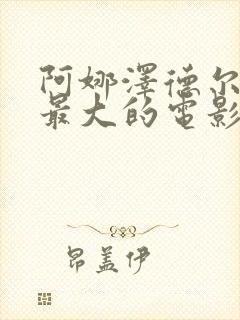 阿娜澤德尔
最大的電影
昂盖伊